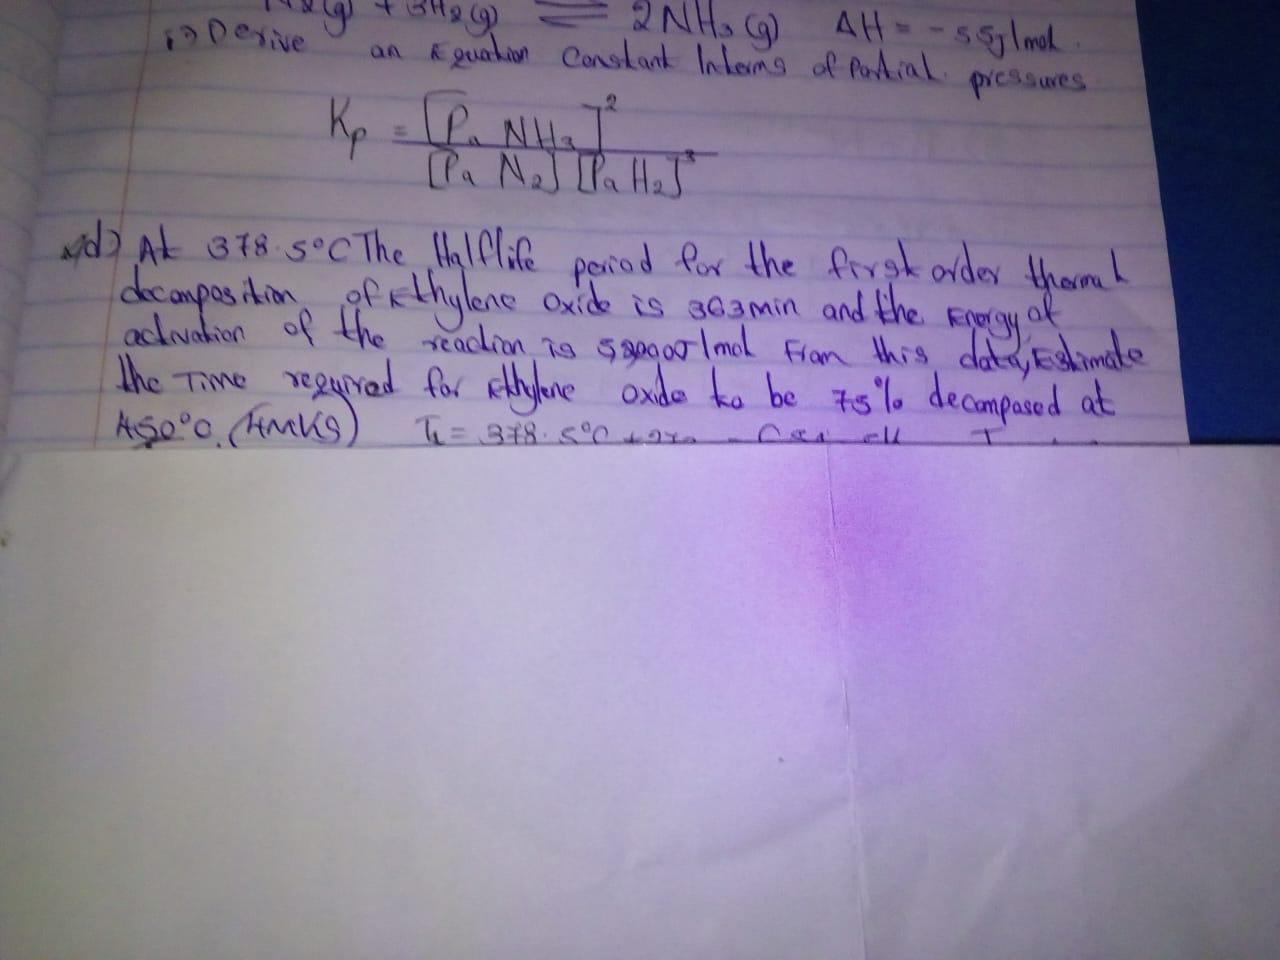 + 3H2(g) ⇌ 2NH3(g) ΔH = -55j/mol.
i) Derive an Equation Constant Interms of Partial pressures
Kp = [Pa NH3]²
[Pa N2] [Pa H2]³
d) At 378.5°C The Halflife period for the first order thermal
decomposition of Ethylene oxide is 363min and the Energy of
activation of the reaction is J/mol From this data, Estimate
the Time required for Ethylene oxide to be 75% decomposed at
450°C. (4MKS) T1 = 378.5°C